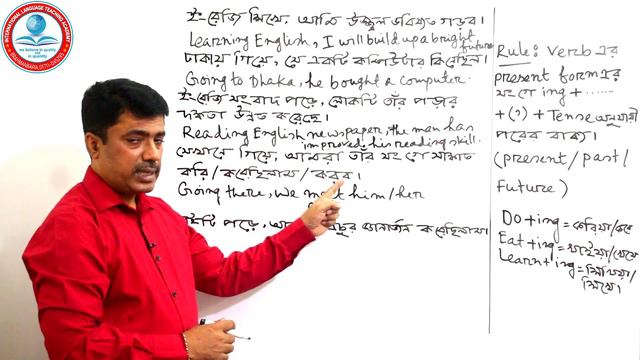 INTERNATIONAL LANGUAGE TEACHING ACADEMY
ইংরেজি শিখে, আমি উজ্জ্বল ভবিষ্যত গড়ব।
Learning English, I will build up a bright future
ঢাকায় গিয়ে, সে একটি কম্পিউটার কিনেছিল।
Going to Dhaka, he bought a computer.
ইংরেজি সংবাদ পড়ে, লোকটি তাঁর পড়ার
দক্ষতা উন্নত করেছে।
Reading English newspaper, the man has
improved his reading skill.
সেখানে গিয়ে, আমরা তাঁর সংগে সাক্ষাত
করি/করেছিলাম/করব।
Going there, we meet him/her
পড়ে,
Rule: Verb এর
present form এর
সংগে ing + ......
+ (,) + Tense অনুযায়ী
পরের বাক্য।
(present/past/
Future)
Do+ing = করিয়া/করে
Eat+ing = খাইয়া/খেয়ে
Learn+ing = শিখিয়া/
শিখে।